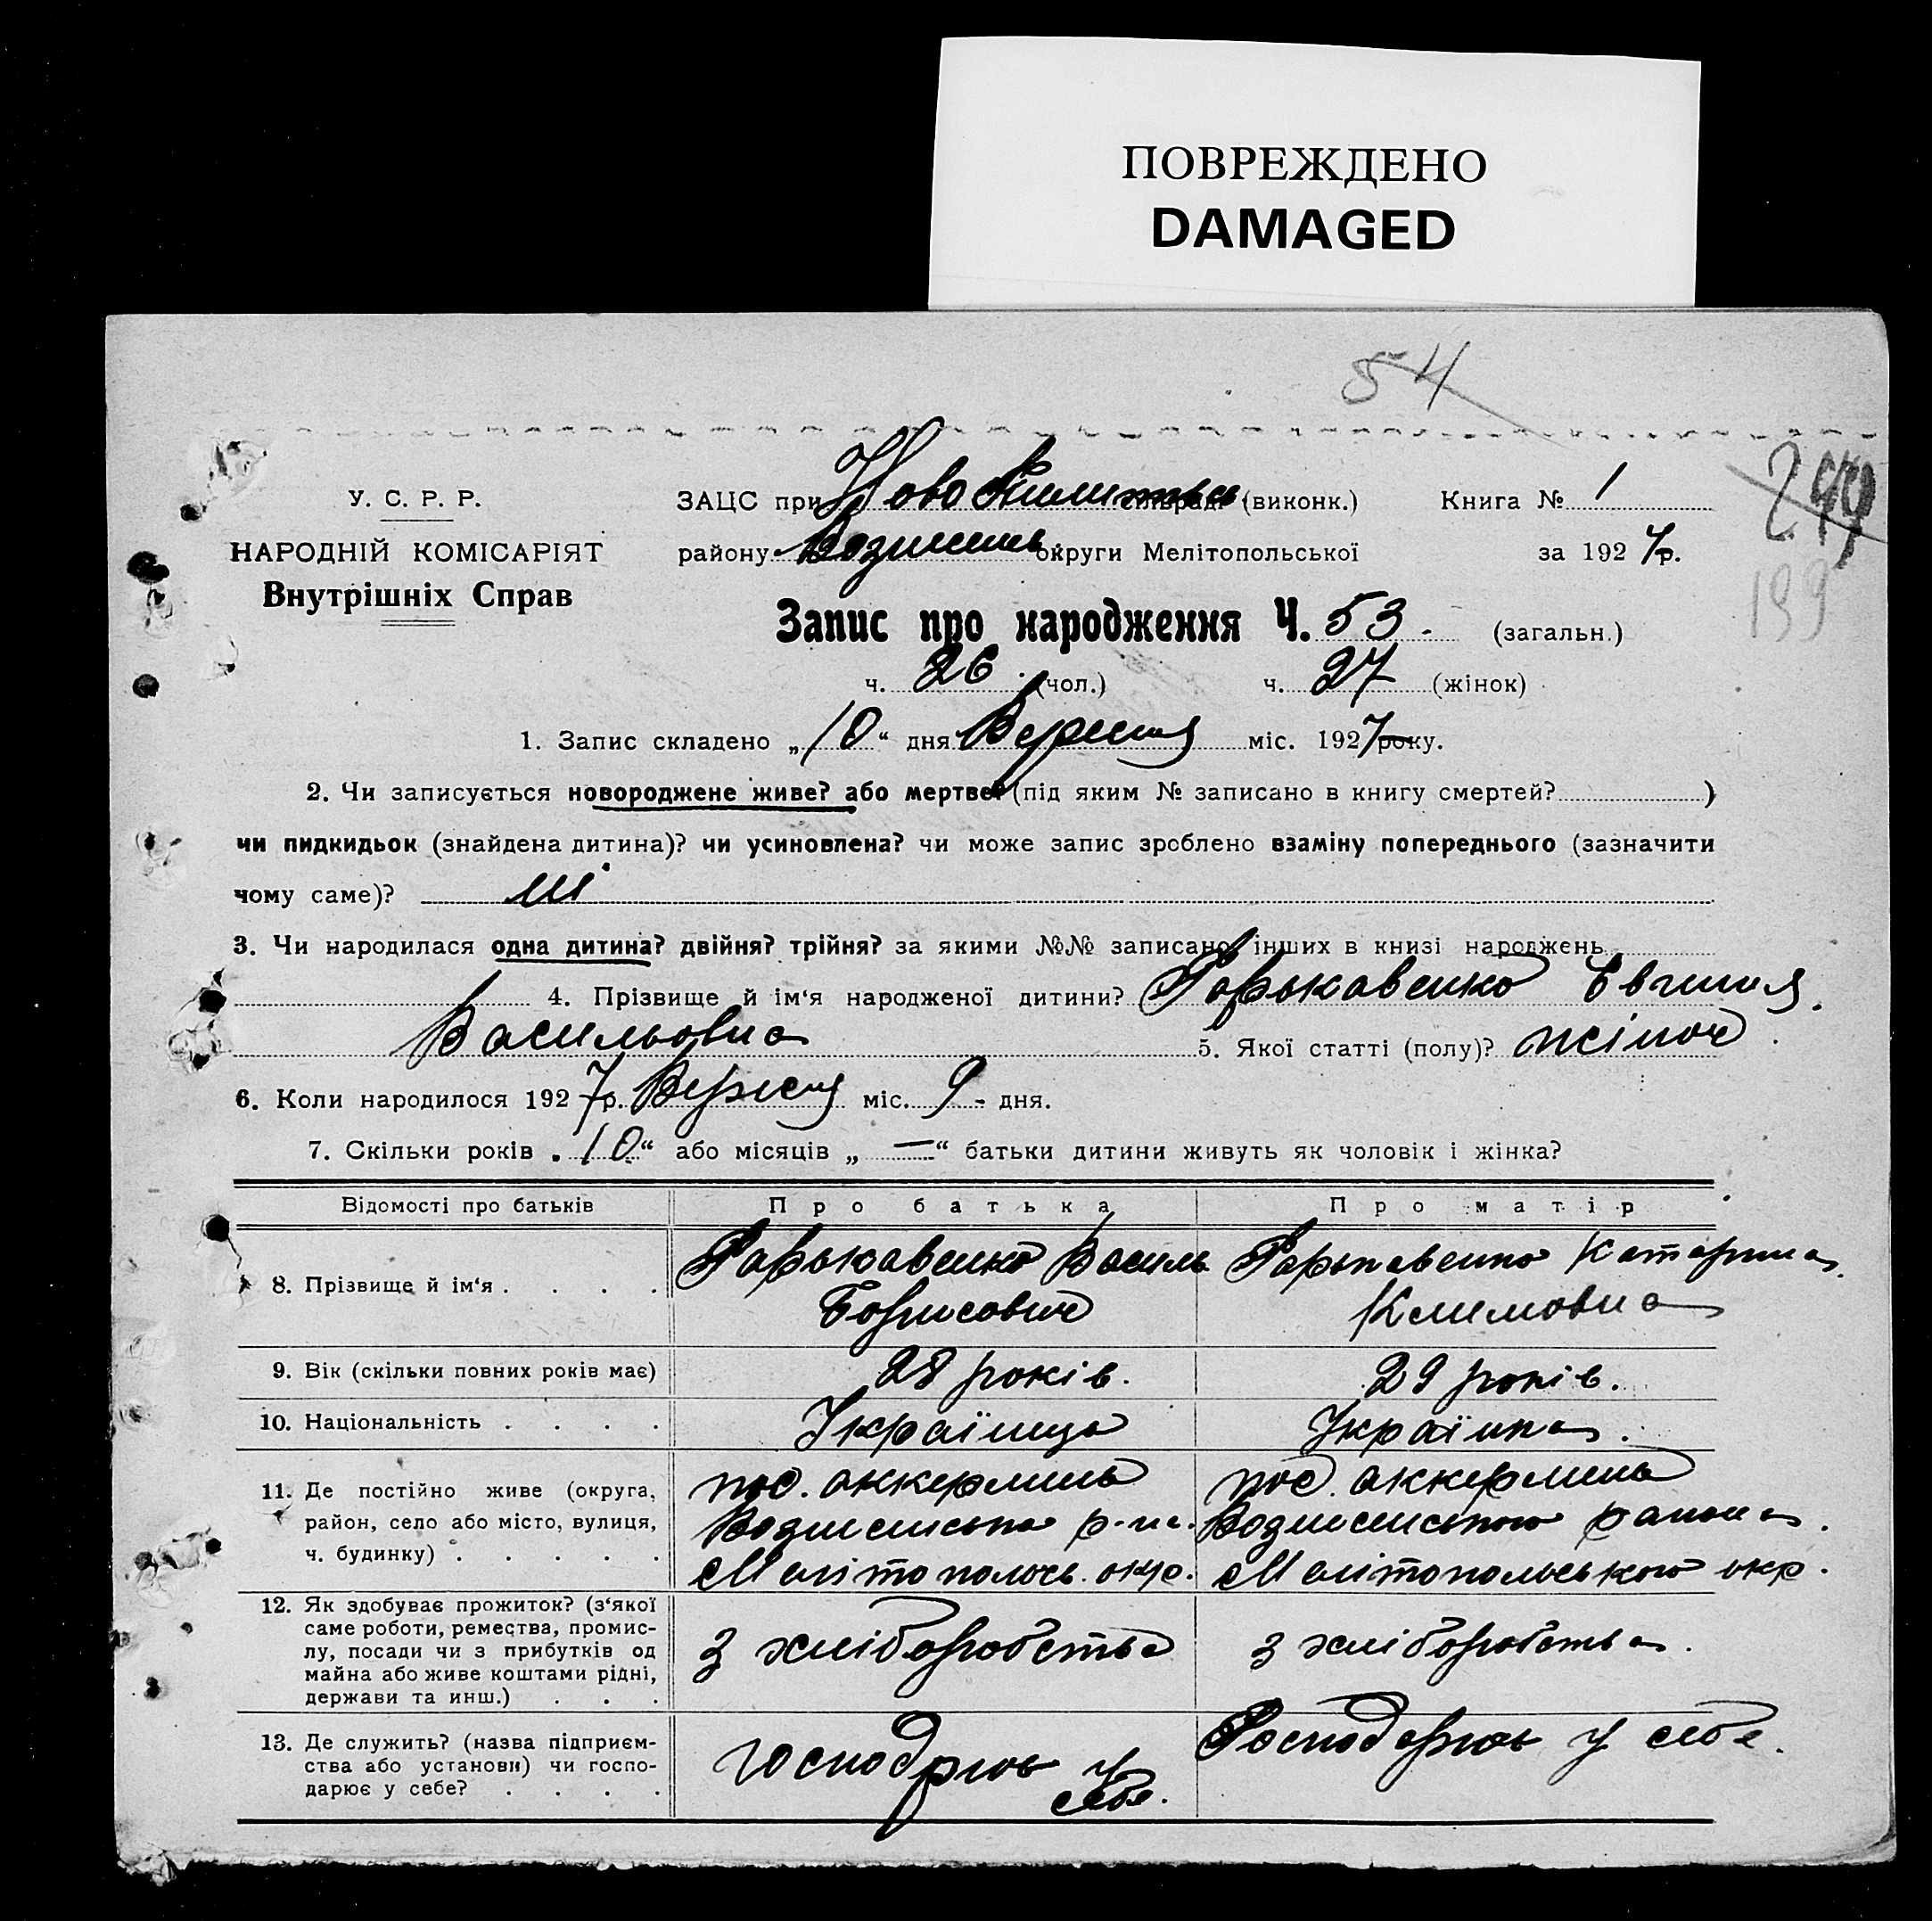 ПОВРЕЖДЕНО
DAMAGED
54
У. С. Р. Р.
НАРОДНІЙ КОМІСАРІЯТ
Внутрішніх Справ
ЗАЦС при Ново сільраді (виконк.) Книга № 1
району округи Мелітопольської за 1927р.
199
Запис про народження Ч. 53. (загальн.)
ч. 26 (чол.) ч. 27 (жінок)
1. Запис складено „10“ дня Вересня міс. 1927 року.
2. Чи записується новороджене живе? або мертве? (під яким № записано в книгу смертей? )
чи пидкидьок (знайдена дитина)? чи усиновлена? чи може запис зроблено взаміну попереднього (зазначити
чому саме)? ні
3. Чи народилася одна дитина? двійня? трійня? за якими №№ записано інших в книзі народжень
4. Прізвище й ім‘я народженої дитини? Горькавенко Евгенія
Васильовна 5. Якої статті (полу)? жіноч.
6. Коли народилося 1927р. Вересня міс. 9 дня.
7. Скільки років „10“ або місяців „—“ батьки дитини живуть як чоловік і жінка?
Відомості про батьків Про батька Про матір
8. Прізвище й ім‘я . . . . Горькавенко Василь Горькавенко Катерина
Борисович Климовна
9. Вік (скільки повних років має) 28 років. 29 років.
10. Національність . . . . Українець Українка.
11. Де постійно живе (округа, район, село або місто, вулиця, ч. будинку) . . . . . пос. Аккермень пос. Аккермень
Вознесенська р-на. Вознесенського района.
Мелітопольсь. окр. Мелітопольського окр.
12. Як здобуває прожиток? (з‘якої саме роботи, ремества, промис-
лу, посади чи з прибутків од
майна або живе коштами рідні,
держави та инш.) . . . з хліборобства з хліборобства.
13. Де служить? (назва підприєм-
ства або установи) чи госпо-
дарює у себе? . . . . господрює у себе. Господарює у себе.